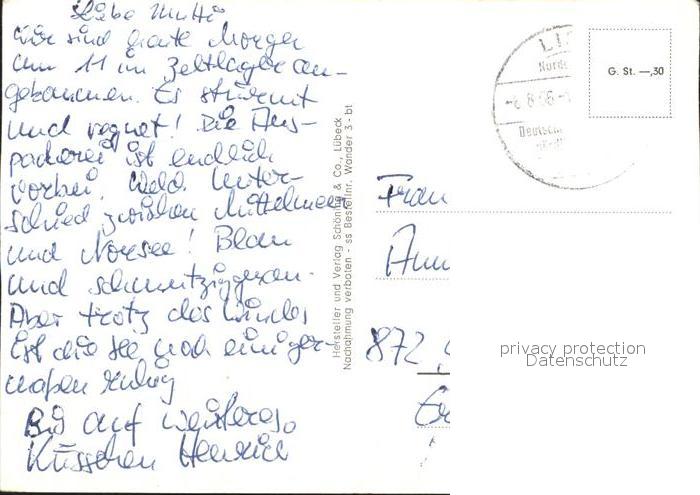 Liebe Mutti
Wir sind heute Morgen
um 11 im Zeltlager an-
gekommen. Es stürmt
und regnet! Die Aus-
packerei ist endlich
vorbei. Welch Unter-
schied zwischen Mittelmeer
und Norsee! Blau
und schmutziggrau.
Aber trotz des Windes
ist die See noch einiger-
maßen ruhig
Bis auf weiteres.
Küsschen Henrich
Hersteller und Verlag Schöning & Co., Lübeck
Nachahmung verboten - ss Bestellnr. Wander 3 - bt
LIS
Norde
-6.8.66-1
Deutsch
G. St. —,30
Frau
Ann
872
privacy protection
Datenschutz